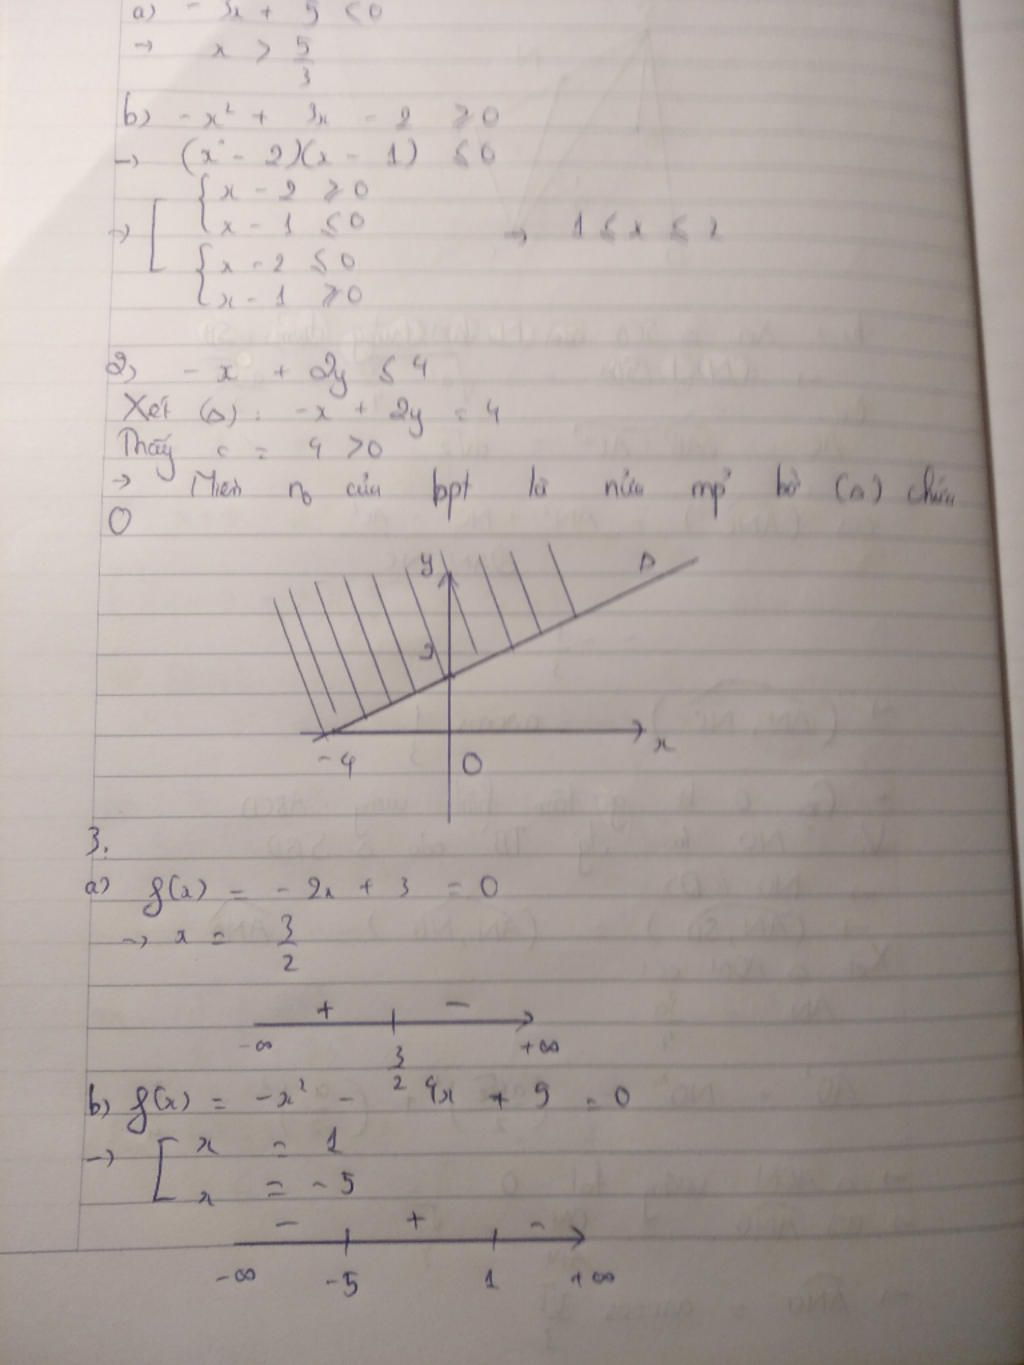 a) - 3x + 5 < 0
→ x > 5/3
b) - x² + 3x - 2 ≥ 0
→ (x - 2)(x - 1) ≤ 0
→ [ { x - 2 ≥ 0
x - 1 ≤ 0
→ 1 ≤ x ≤ 2
{ x - 2 ≤ 0
x - 1 ≥ 0
2) - x + 2y ≤ 4
Xét (Δ): -x + 2y = 4
Thấy c = 4 > 0
→ Miền no của bpt là nửa mp bờ (Δ) chứa
O
y Δ
2
-4 O x
3.
a) f(x) = - 2x + 3 = 0
→ x = 3/2
+ -
-∞ 3/2 +∞
b) f(x) = -x² - 4x + 5 = 0
→ [ x = 1
x = -5
- + -
-∞ -5 1 +∞